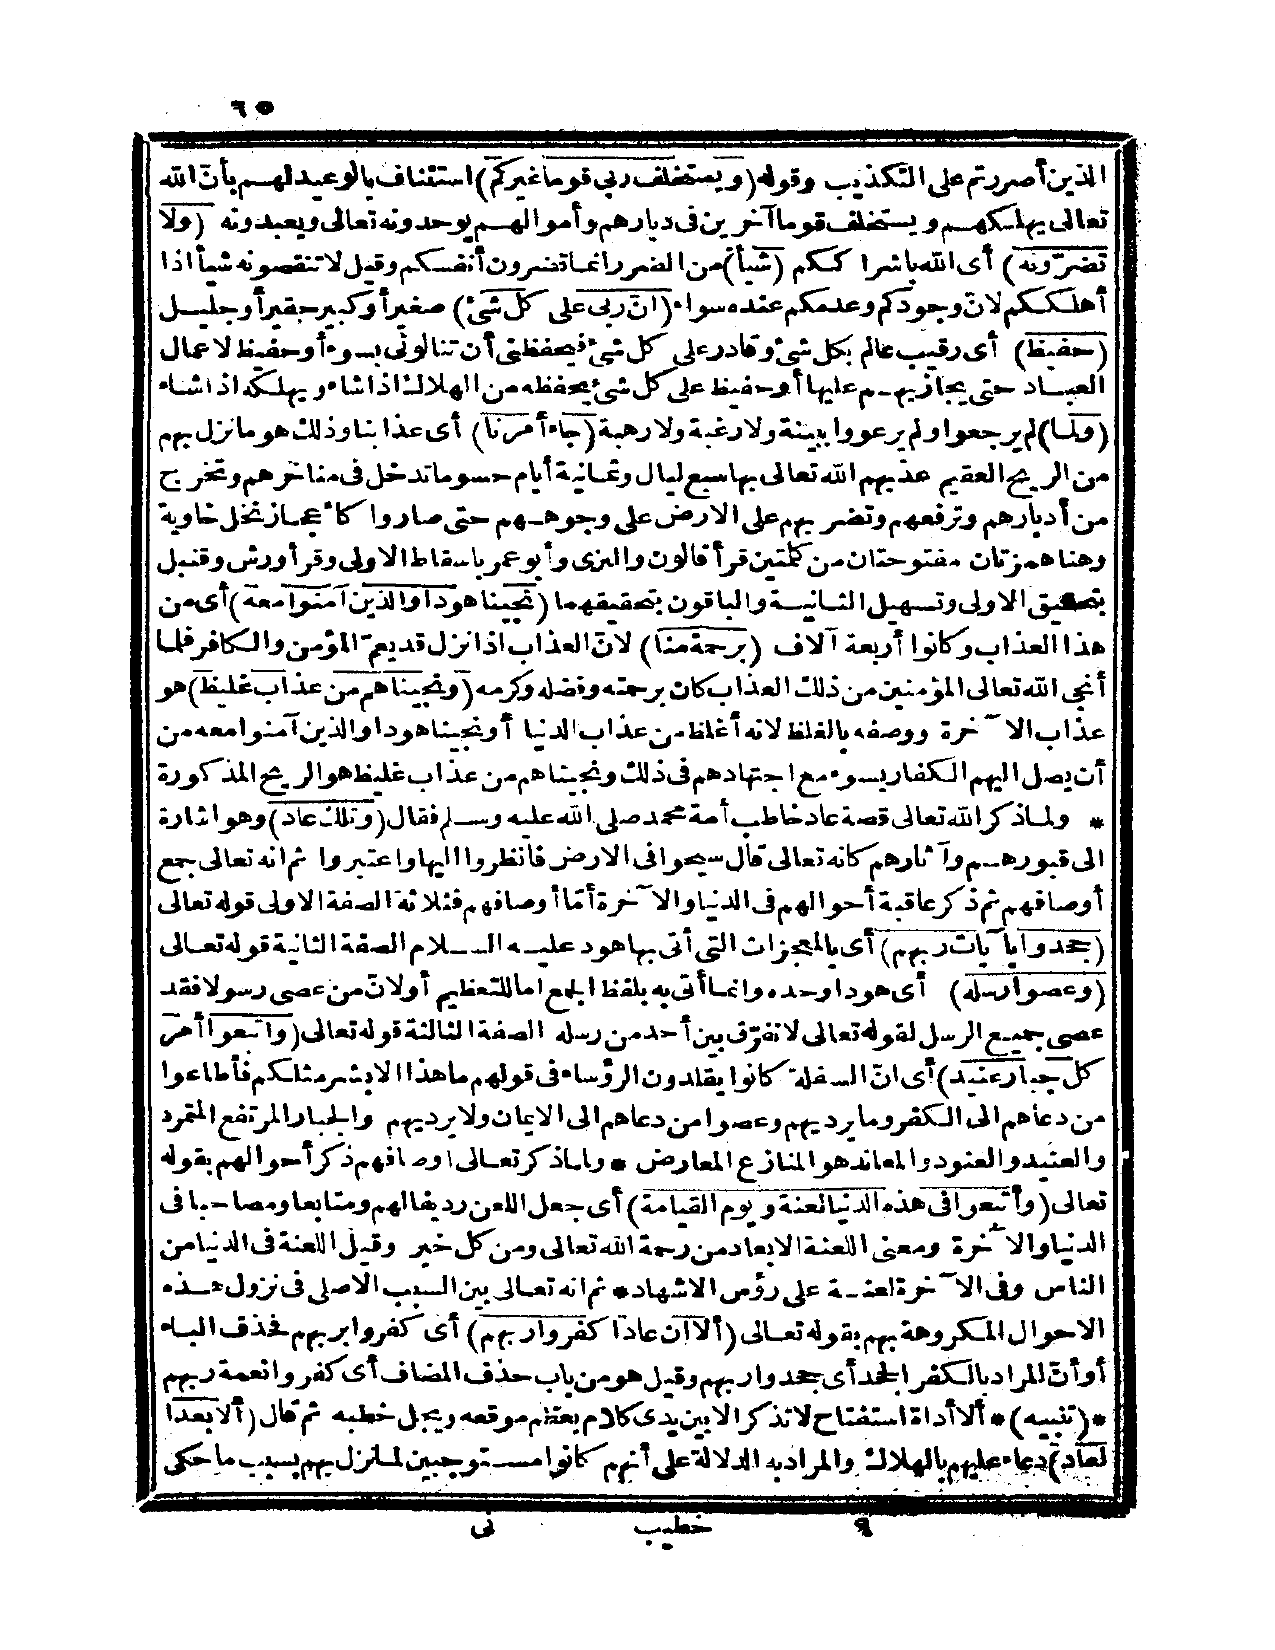 ٦٥
الذين أصررتم على التكذيب وقوله (ويستخلف ربي قوما غيركم) استئناف بالوعيد لهم بأنّ الله
تعالى يهلكهم ويستخلف قوما آخرين فى ديارهم وأموالهم يوحدونه تعالى ويعبدونه (ولا
تضرّونه) أى الله باشراككم (شيأ) من الضرر انما تضرون أنفسكم وقيل لا تنقصونه شيأ اذا
أهلككم لانّ وجودكم وعدمكم عنده سواء (انّ ربى على كل شئ) صغيرا وكبير حقيرا وجليل
(حفيظ) أى رقيب عالم بكل شئ وقادر على كل شئ فيحفظنى أن تنالونى بسوء أو حفيظ لاعمال
العباد حتى يجازيهم عليها أو حفيظ على كل شئ يحفظه من الهلاك اذا شاء ويهلكه اذا شاء
(ولما) لم يرجعوا ولم يرعووا ببينة ولا رغبة ولا رهبة (جاء أمرنا) أى عذابنا وذلك هو ما نزل بهم
من الريح العقيم عذبهم الله تعالى بها سبع ليال وثمانية أيام حسوما تدخل فى مناخرهم وتخرج
من أدبارهم وترفعهم وتضربهم على الارض على وجوههم حتى صاروا كأعجاز نخل خاوية
وهنا همزتان مفتوحتان من كلمتين قرأ قالون والبزى وأبو عمر باسقاط الاولى وقرأ ورش وقنبل
بتحقيق الاولى وتسهيل الثانية والباقون بتحقيقهما (نجينا هودا والذين آمنوا معه) أى من
هذا العذاب وكانوا أربعة آلاف (برحمة منا) لانّ العذاب اذا نزل قد يعمّ المؤمن والكافر فلما
أنجى الله تعالى المؤمنين من ذلك العذاب كان برحمته وفضله وكرمه (ونجيناهم من عذاب غليظ) هو
عذاب الآخرة ووصفه بالغلظ لانه أغلظ من عذاب الدنيا أو نجينا هودا والذين آمنوا معه من
أن يصل اليهم الكفار بسوء مع اجتهادهم فى ذلك ونجيناهم من عذاب غليظ هو الريح المذكورة
* ولما ذكر الله تعالى قصة عاد خاطب أمة محمد صلى الله عليه وسلم فقال (وتلك عاد) وهو اشارة
الى قبورهم وآثارهم كانه تعالى قال سيحوا فى الارض فانظروا اليها واعتبروا ثم انه تعالى جمع
أوصافهم ثم ذكر عاقبة أحوالهم فى الدنيا والآخرة أمّا أوصافهم فثلاثة الصفة الاولى قوله تعالى
(جحدوا بآيات ربهم) أى بالمعجزات التى أتى بها هود عليه السلام الصفة الثانية قوله تعالى
(وعصوا رسله) أى هودا وحده وانما أتى به بلفظ الجمع اما للتعظيم أو لانّ من عصى رسولا فقد
عصى جميع الرسل لقوله تعالى لا نفرّق بين أحد من رسله الصفة الثالثة قوله تعالى (واتبعوا أمر
كل جبار عنيد) أى انّ السفلة كانوا يقلدون الرؤساء فى قولهم ما هذا الا بشر مثلكم فأطاعوا
من دعاهم الى الكفر وما يرديهم وعصوا من دعاهم الى الايمان ولا يرديهم والجبار المرتفع المتمرد
والعنيد والعنود والمعاند هو المنازع المعارض * ولما ذكر تعالى اوصافهم ذكر أحوالهم بقوله
تعالى (وأتبعوا فى هذه الدنيا لعنة ويوم القيامة) أى جعل اللعن رديفا لهم ومتابعا ومصاحبا فى
الدنيا والآخرة ومعنى اللعنة الابعاد من رحمة الله تعالى ومن كل خير وقيل اللعنة فى الدنيا من
الناس وفى الآخرة لعنة على رؤس الاشهاد * ثم انه تعالى بين السبب الاصلى فى نزول هذه
الاحوال المكروهة بهم بقوله تعالى (ألا انّ عادا كفروا ربهم) أى كفروا بربهم فحذف الباء
أو أنّ المراد بالكفر الجحد أى جحدوا ربهم وقيل هو من باب حذف المضاف أى كفروا نعمة ربهم
* (تنبيه) * ألا أداة استفتاح لا تذكر الا بين يدى كلام يعظم موقعه ويجل خطبه ثم قال (ألا بعدا
لعاد) دعاء عليهم بالهلاك والمراد به الدلالة على أنهم كانوا مستوجبين لما نزل بهم بسبب ما حكى
٩ خطيب نى